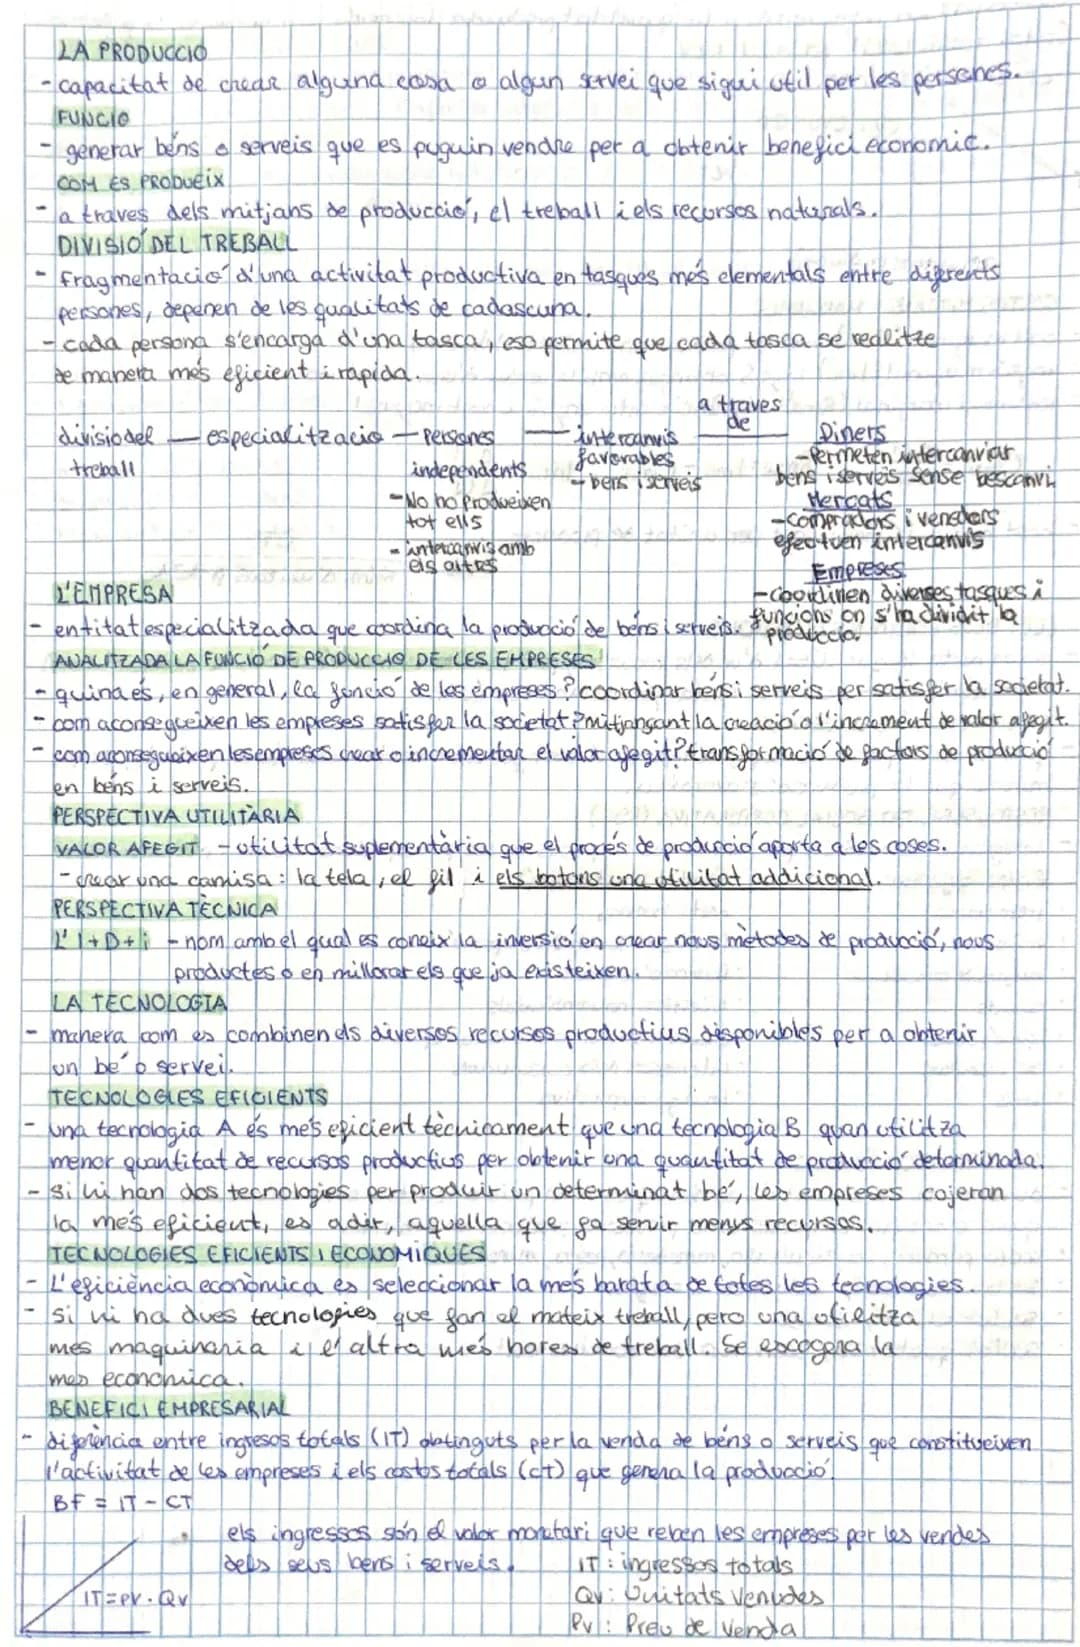 LA PRODUCCIO
- capacitat de crear alguna cosa o algun servei que sigui util per les persones.
FUNCIO
- generar béns o serveis que es puguin vendre per a obtenir benefici economic.
COM ES PRODUEIX
- a traves dels mitjans de producció, el treball i els recursos naturals.
DIVISIÓ DEL TREBALL
- Fragmentació d'una activitat productiva en tasques més elementals entre diferents
persones, depenen de les qualitats de cadascuna.
- cada persona s'encarga d'una tasca, eso permite que cada tasca se realitze
de manera més eficient i rapida.
a traves
de
divisio del — especialitzacio — Persones — intercanvis Diners
treball independents favorables - Permeten intercanviar
- bens i serveis bens i serveis sense bescanvi
- No ho Produeixen Mercats
tot ells - compradors i venedors
- intercanvis amb efectuen intercanvis
els altres Empreses
L'EMPRESA - coordinen diverses tasques i
- entitat especialitzada que coordina la producció de béns i serveis. funcions on s'ha dividit la
produccio.
ANALITZADA LA FUNCIÓ DE PRODUCCIO DE LES EMPRESES
- quina és, en general, la funció de les empreses? coordinar béns i serveis per satisfer la societat.
- com aconsegueixen les empreses satisfer la societat? mitjançant la creació o l'increment de valor afegit.
- com aconsegueixen les empreses crear o incrementar el valor afegit? transformació de factors de producció
en béns i serveis.
PERSPECTIVA UTILITÀRIA
VALOR AFEGIT - utilitat suplementària que el procés de producció aporta a les coses.
- crear una camisa: la tela, el fil i els botons una utilitat addicional.
PERSPECTIVA TÈCNICA
L' I+D+i - nom amb el qual es coneix la inversió en crear nous mètodes de producció, nous
productes o en millorar els que ja existeixen.
LA TECNOLOGIA
- manera com es combinen els diversos recursos productius disponibles per a obtenir
un bé o servei.
TECNOLOGIES EFICIENTS
- una tecnologia A és més eficient tècnicament que una tecnologia B quan utilitza
menor quantitat de recursos productius per obtenir una quantitat de producció determinada.
- si hi han dos tecnologies per produir un determinat bé, les empreses cojeran
la més eficient, es a dir, aquella que fa servir menys recursos.
TECNOLOGIES EFICIENTS I ECONOMIQUES
- L'eficiència econòmica es seleccionar la més barata de totes les tecnologies.
- si hi ha dues tecnologies que fan el mateix treball, pero una utilitza
mes maquinaria i l'altra més hores de treball. Se escogera la
mes economica.
BENEFICI EMPRESARIAL
- diferència entre ingresos totals (IT) obtinguts per la venda de béns o serveis que constitueixen
l'activitat de les empreses i els costos totals (CT) que genera la producció.
BF = IT - CT
els ingressos són el valor monetari que reben les empreses per les vendes
dels seus bens i serveis. IT: ingressos totals
IT=PV·QV Qv: Unitats Venudes
Pv: Preu de Venda